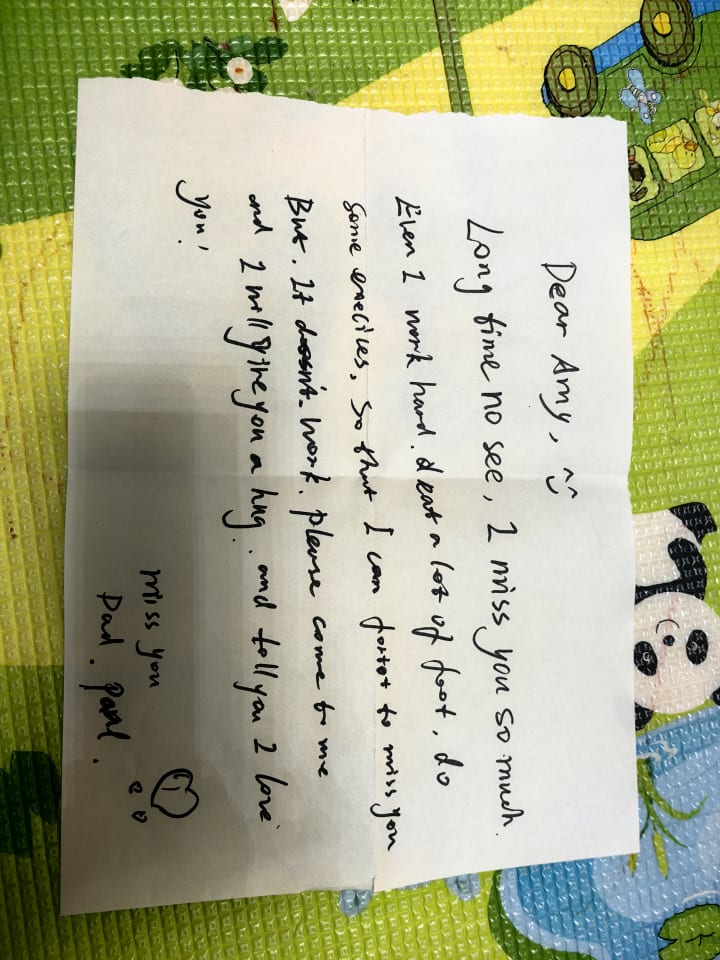 Dear Amy,
Long time no see, I miss you so much.
Even I work hard. eat a lot of foot, do
some execises, so that I can fortot to miss you
But. It doesn't work. please come to me
and I will give you a hug. and tell you I love
you!
miss you
Dad.